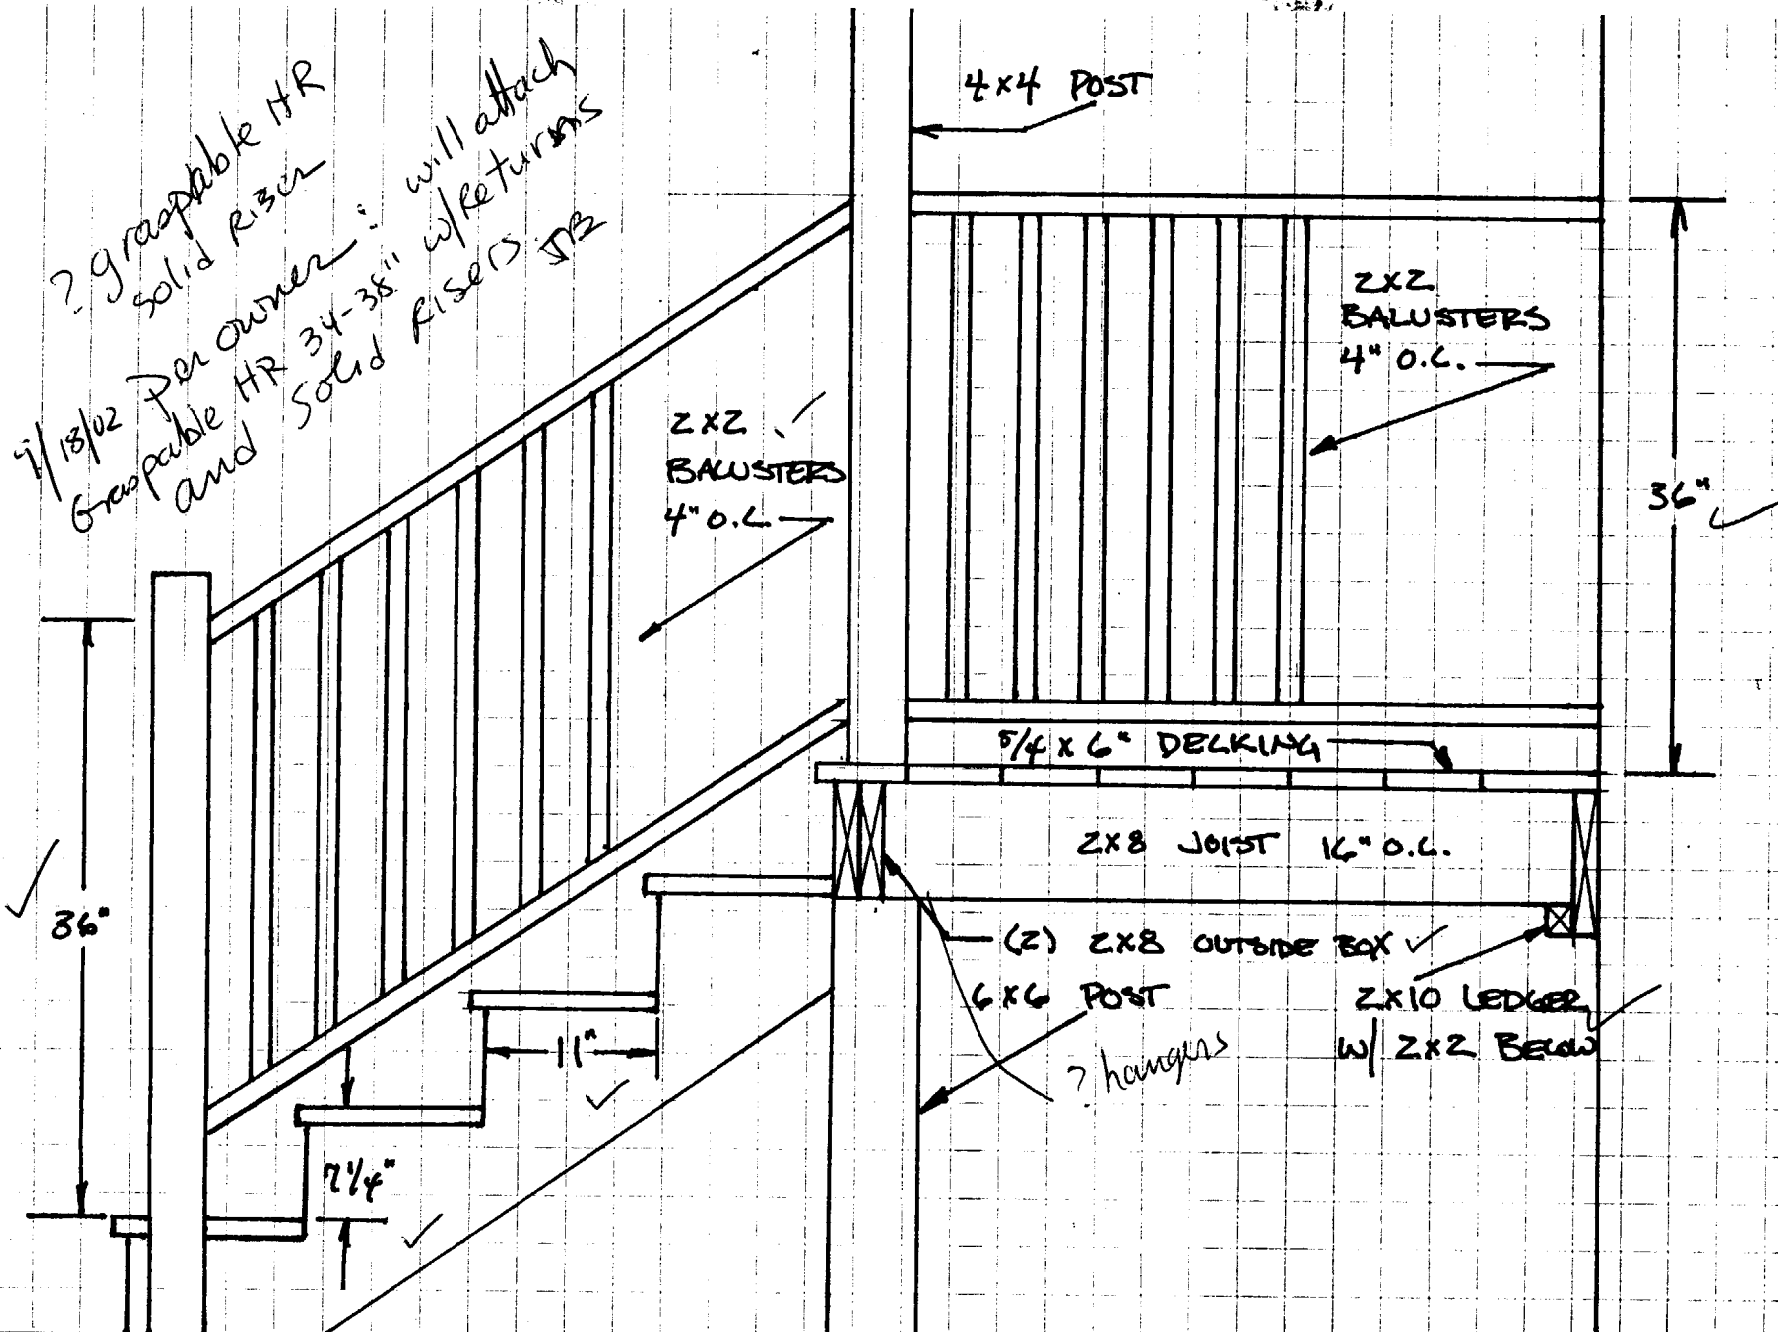 ? graspable HR
solid Riser
9/18/02 Per owner: will attach
Graspable HR 34-38" w/Returns
and solid Risers JB
4x4 POST
2x2
BALUSTERS
4" O.C.
2x2
BALUSTERS
4" O.C.
36"
5/4 x 6" DECKING
2x8 JOIST 16" O.C.
36"
(2) 2x8 OUTSIDE BOX
6x6 POST
2x10 LEDGER
W/ 2x2 BELOW
11"
? hangers
7 1/4"